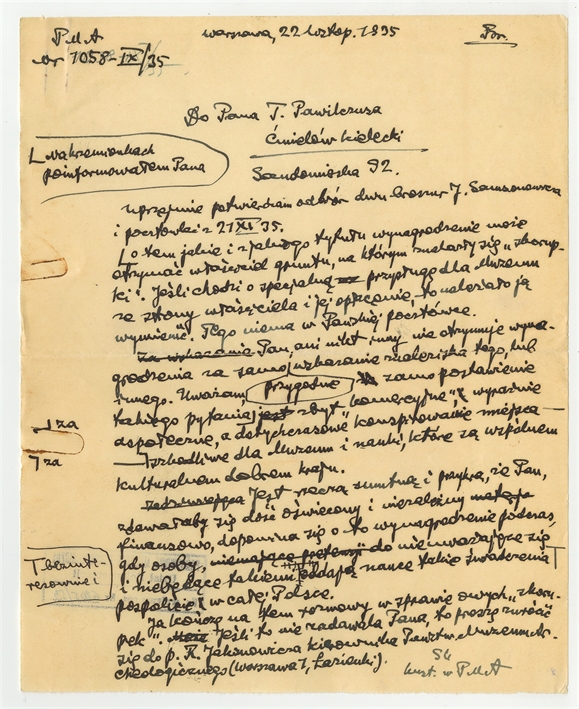 PMA
Nr 1058-IX/35
Warszawa, 22 listop. 1935
Do Pana T. Pawilczusa
Ćmielów Kielecki
Sandomierska 92.
w krzemionkach
poinformowałem Pana
uprzejmie potwierdzam odbiór dwu broszur J. Samsonowicza
i pocztówki z 21 XI 35.
o tem jakie i z jakiego tytułu wynagrodzenie może
otrzymać właściciel gruntu, na którym znalazły się „skorup-
ki". Jeśli chodzi o specjalną przysługę dla Muzeum
ze strony właściciela i jej opłacenie, to należało ją
wymienić. Tego niema w Pańskiej pocztówce.
za wskazanie Pan, ani nikt inny nie otrzymuje wyna-
grodzenia za samo wskazanie znaleziska tego, lub
innego. Uważam przygodne za samo postawienie
takiego pytania jest zbyt „komercyjne", wyraźnie
aspołeczne, a dotychczasowe konspirowanie miejsca
1 za
szkodliwe dla Muzeum i nauki, które są wspólnem
7 za
kulturalnem dobrem kraju.
jest rzeczą smutną i przykrą, że Pan,
zdawałaby się dość oświecony i niezależny
finansowo, dopomina się o to wynagrodzenie podczas,
gdy osoby, niemające pretensji do nieuważające się
T bezinte-
resownie i
i niebędące takiemi oddają nauce takie świadczenia
pospolicie w całej Polsce.
Ja kończę na tem rozmowy w sprawie owych „skoru-
pek". Jeśli to nie zadawala Pana, to proszę zwrócić
się do p. R. Jakimowicza kierownika Państw. Muzeum Ar-
cheologicznego (Warszawa 1, Łazienki).
Kust. w PMA